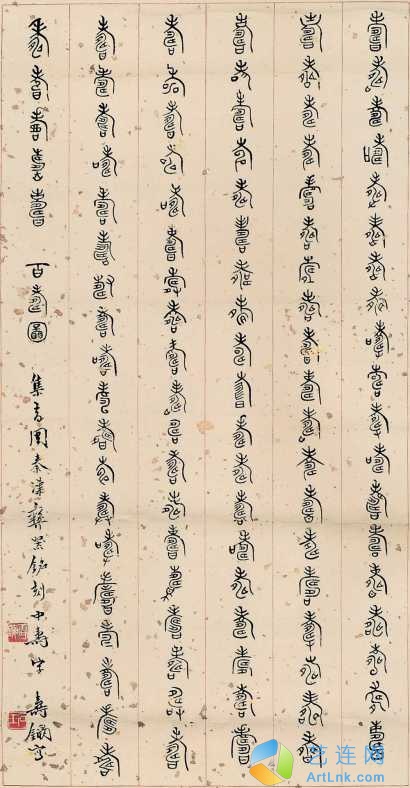 壽壽壽壽壽壽壽壽壽壽壽壽壽壽壽壽壽壽壽
壽壽壽壽壽壽壽壽壽壽壽壽壽壽壽壽壽壽壽
壽壽壽壽壽壽壽壽壽壽壽壽壽壽壽壽壽壽壽
壽壽壽壽壽壽壽壽壽壽壽壽壽壽壽壽壽壽壽
壽壽壽壽壽壽壽壽壽壽壽壽壽壽壽壽壽壽壽
壽壽壽壽壽 百壽圖 集商周秦漢彝器銘刻中壽字 壽
艺连网
ArtLnk.com